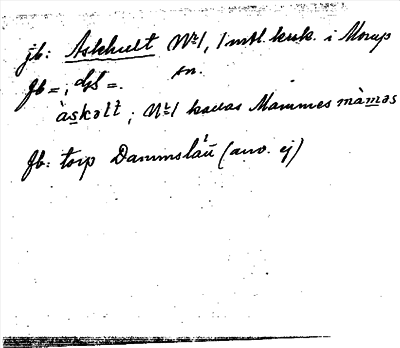 jb: Askhult Nº1, 1 mtl. krsk. i Morup sn.
Jb = ; Gs =.
àskəlt ; Nº1 kallas Mammes màməs
Jb: torp Dammslätt (anv. ej)